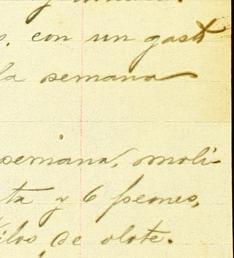 s, con un gast
la semana
semana, moli
ta y 6 peones,
kilos de olote.